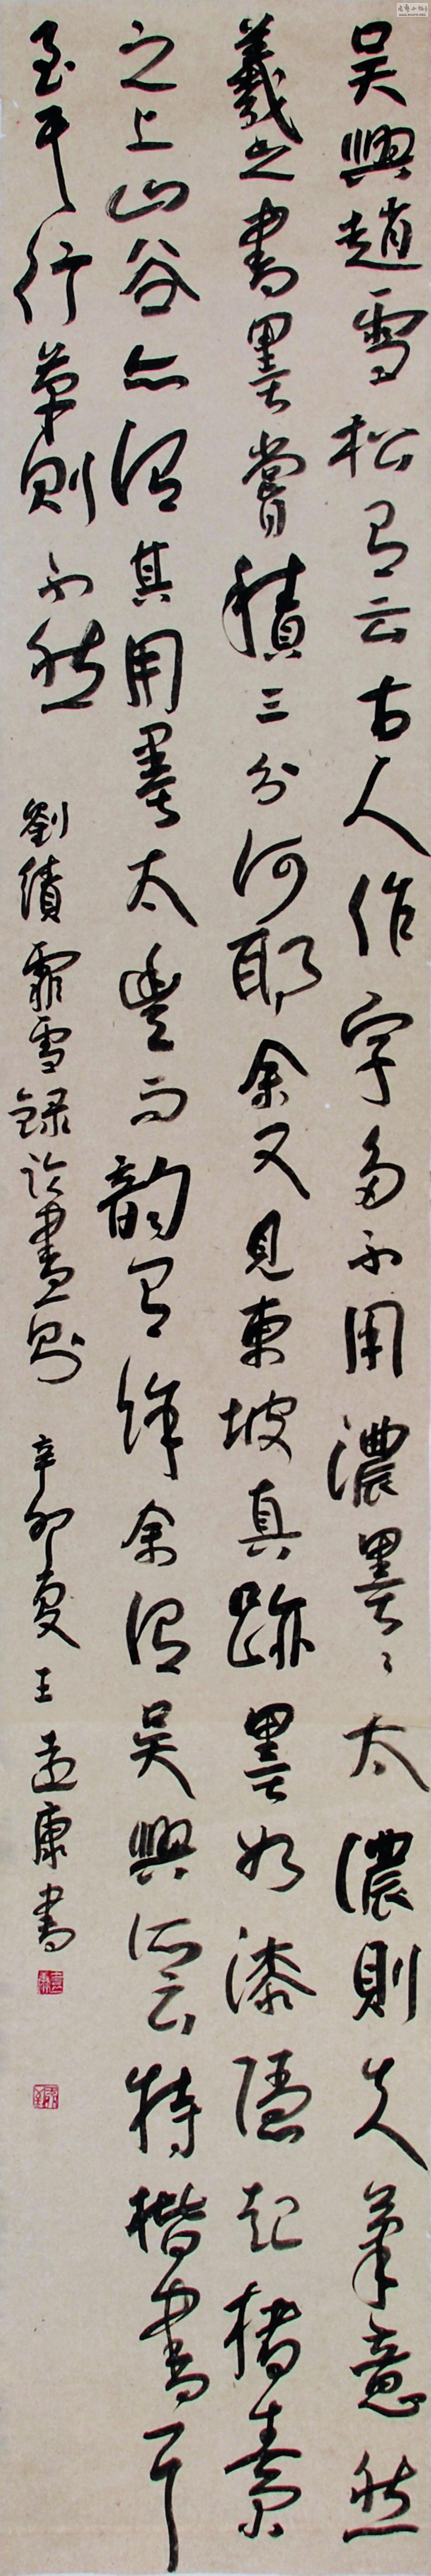 吳興趙雪松有云古人作字多不用濃墨〻太濃則失筆意然
羲之書墨嘗積三分何耶余又見東坡真跡墨如漆隱起楮素
之上山谷亦謂其用墨太豐而韻有餘余謂吳興所云特楷書耳
至于行草則不然
劉績霏雪錄論書則 辛卯夏王孟康書